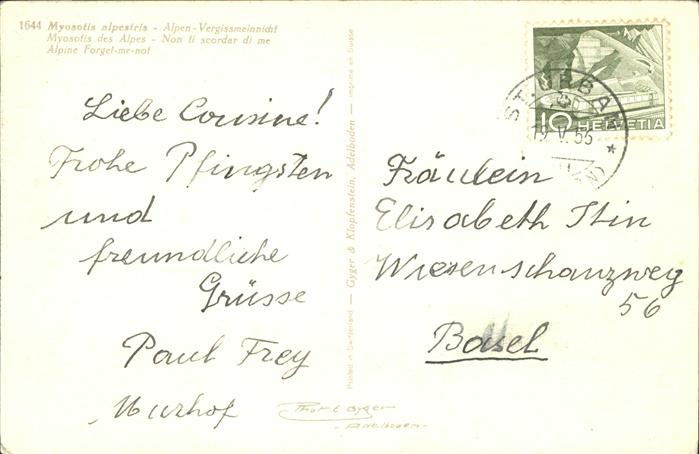 1644 Myosotis alpestris - Alpen-Vergissmeinnicht
Myosotis des Alpes - Non ti scordar di me
Alpine Forget-me-not
Liebe Cousine!
Frohe Pfingsten
und
freundliche
Grüsse
Paul Frey
Murhof
Printed in Switzerland — Gyger & Klopfenstein, Adelboden — Imprimé en Suisse
Phot. E. Gyger
- Adelboden -
10 HELVETIA
ST. URBAN
19. V. 55
Fräulein
Elisabeth Itin
Wiesenschanzweg
56
Basel